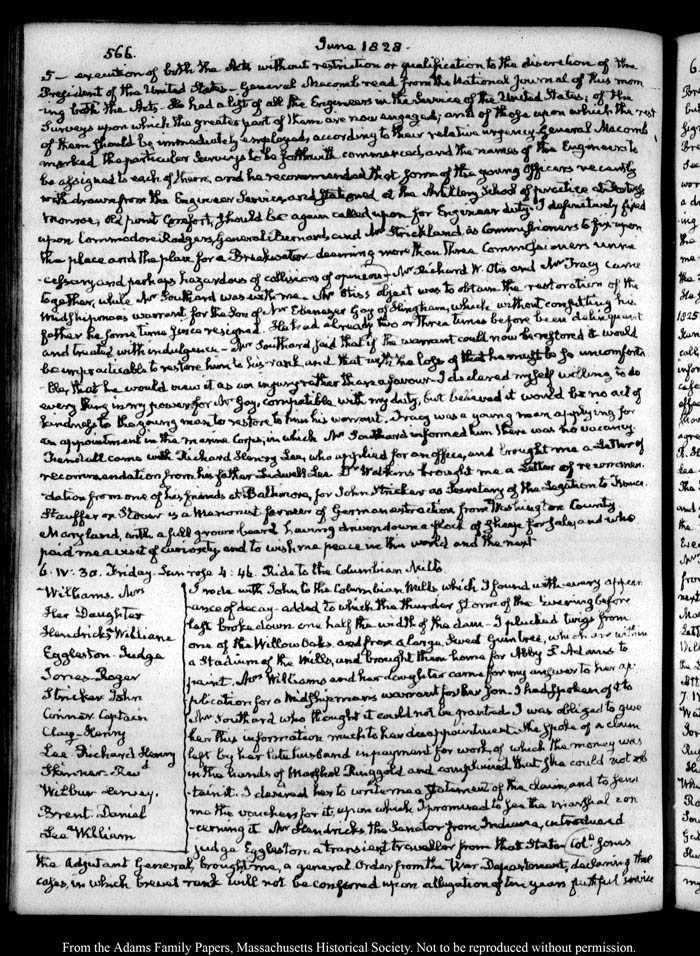 566.
June 1828.
5— execution of both the Acts without restriction or qualification to the discretion of the
President of the United States— General Macomb read from the National Journal of this morn
-ing both the Acts— He had a list of all the Engineers in the Service of the United States; of the
Surveys upon which the greater part of them are now engaged; and of those upon which the rest
of them should be immediately employed, according to their relative urgency. General Macomb
marked the particular Surveys to be forthwith commenced, and the names of the Engineers to
be assigned to each of them, and he recommended that some of the young Officers recently
withdrawn from the Engineer Service, and stationed at the Artillery School of practice at Fortress
Monroe, Old point Comfort, should be again called upon for Engineer duty. I definitively fixed
upon Commodore Rodgers, General Bernard, and Mr Strickland, as Commissioners to fix upon
the place and the plan for a Breakwater— deeming more than three Commissioners unne
-cessary and perhaps hazardous of collisions of opinion— Mr Richard W. Otis and Mr Tracy came
together, while Mr Southard was with me— Mr Otis's object was to obtain the restoration of the
Midshipmans warrant for the Son of Mr Ebenezer Gay of Hingham, which without consulting his
father he some time since resigned. He had already two or three times before been delinquent
and treated with indulgence— Mr Southard said that if the warrant could now be restored it would
be impracticable to restore him to his rank, and that with the loss of that he must be so uncomforta
-ble, that he would view it as an injury rather than a favour— I declared myself willing to do
every thing in my power for Mr Gay, compatible with my duty, but believed it would be no act of
kindness to the young man to restore to him his warrant. Tracy was a young man applying for
an appointment in the marine Corps, in which Mr Southard informed him there was no vacancy.
Trenstall came with Richard Henry Lee, who applied for an office, and brought me a Letter of
recommendation from his father Ludwell Lee. Dr Watkins brought me a Letter of recommen-
-dation from one of his friends at Baltimore, for John Stricker as Secretary of the Legation to France.
Stauffer or Stover is a Menonist farmer of German extraction from Washington County
Maryland, with a full grown beard having driven down a flock of sheep for sale, and who
paid me a visit of curiosity and to wish me peace in this world and the next
6. IV: 30. Friday. Sun rose 4:46. Ride to the Columbian Mills.
Williams. Mrs
Her Daughter
Hendricks William
Eggleston. Judge
Jones Roger
Stricker John
Connor Captain
Clay. Henry
Lee Richard Henry
Skinner. Revd
Wilbur Hervey.
Brent. Daniel
Lee William
I rode with John to the Columbian Mills which I found with every appear
-ance of decay— added to which the thunder storm of the Evening before
last broke down one half the width of the dam— I plucked twigs from
one of the Willow Oaks and from a large Sweet Gum tree, which are within
a Stadium of the Mills, and brought them home for Abby S. Adams to
paint. Mrs Williams and her daughter came for my answer to her ap
-plication for a Midshipmans warrant for her Son. I had spoken of it to
Mr Southard who thought it could not be granted. I was obliged to give
her this information much to her disappointment. She spoke of a claim
left by her late husband in payment for work, of which the money was
in the hands of Marshal Ringgold and complained that she could not ob
-tain it. I desired her to write me a Statement of the claim, and to send
me the vouchers for it, upon which I promised to see the marshal con
-cerning it. Mr Hendricks the Senator from Indiana, introduced
Judge Eggleston a transient traveller from that State. Coll Jones
the Adjutant General, brought me, a general Order from the War Department, declaring the
cases, in which brevet rank will not be conferred upon allegation of ten years faithful service
From the Adams Family Papers, Massachusetts Historical Society. Not to be reproduced without permission.